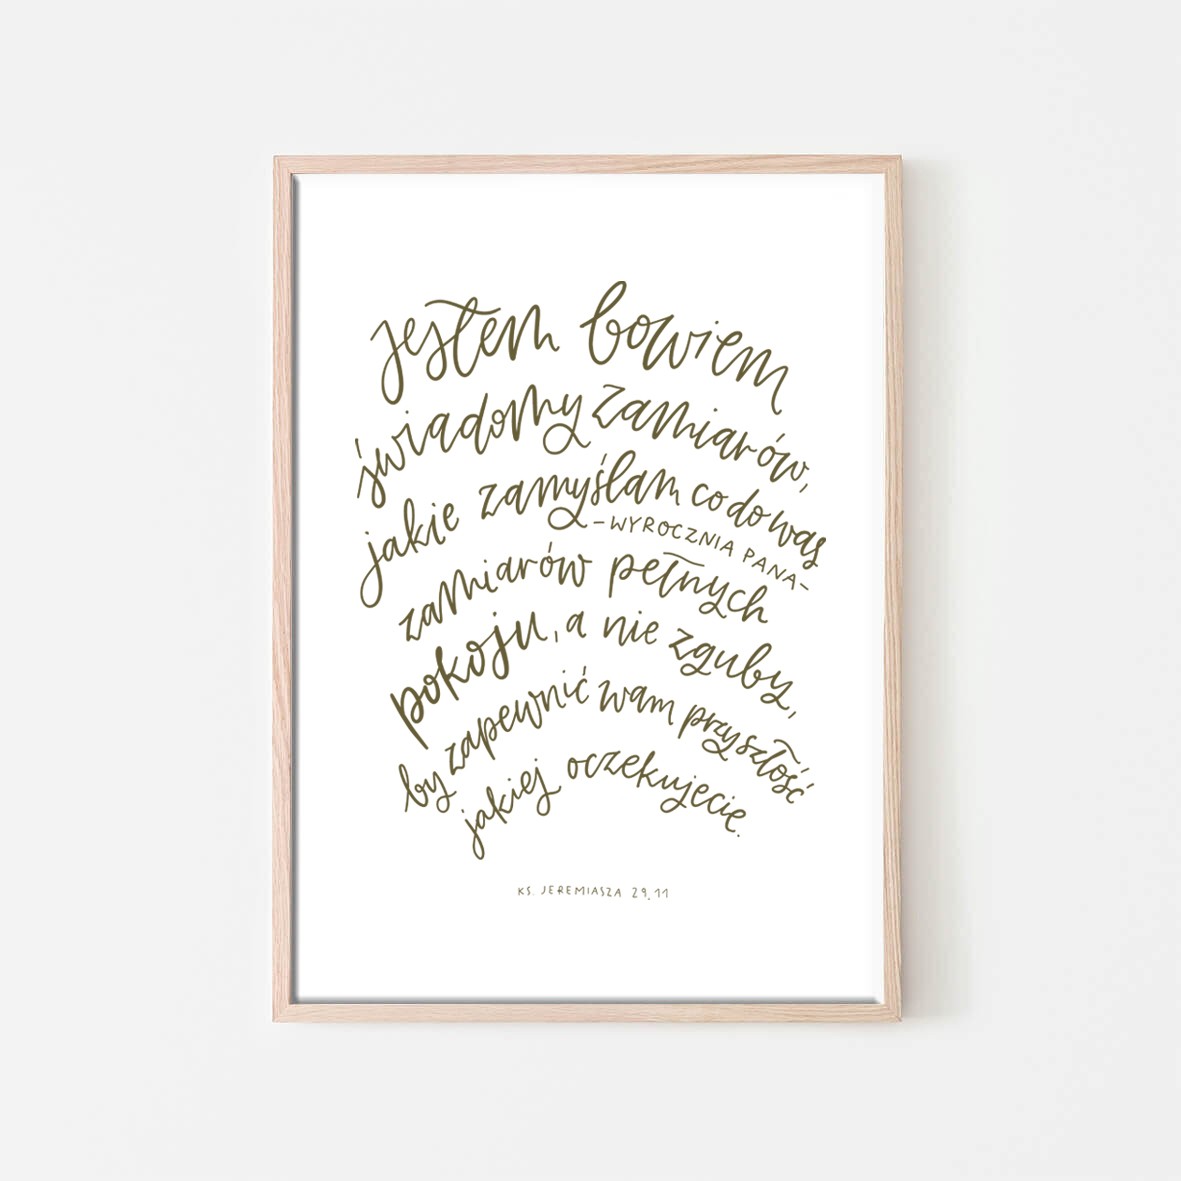 jestem bowiem
świadomy zamiarów,
jakie zamyślam co do was
-WYROCZNIA PANA-
zamiarów pełnych
pokoju, a nie zguby,
by zapewnić wam przyszłość
jakiej oczekujecie.
KS. JEREMIASZA 29,11